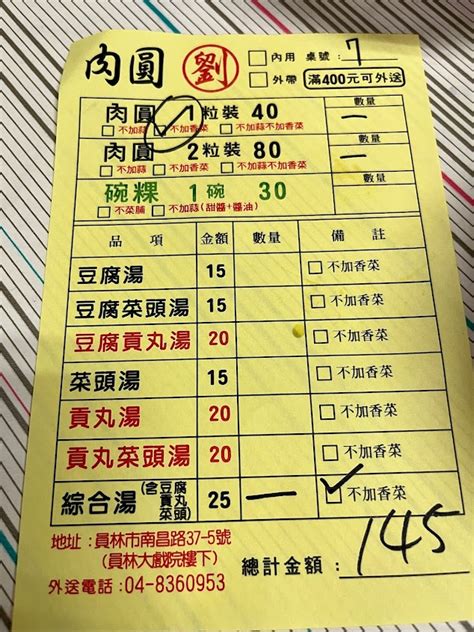 肉圓 劉 □內用 桌號：7
□外帶 滿400元可外送
肉圓 1粒裝 40 數量 一
□不加蒜 □不加香菜 □不加蒜不加香菜
肉圓 2粒裝 80 數量 一
□不加蒜 □不加香菜 □不加蒜不加香菜
碗粿 1碗 30 數量
□不菜脯 □不加蒜(甜醬+醬油)
品項 金額 數量 備註
豆腐湯 15 □不加香菜
豆腐菜頭湯 15 □不加香菜
豆腐貢丸湯 20 □不加香菜
菜頭湯 15 □不加香菜
貢丸湯 20 □不加香菜
貢丸菜頭湯 20 □不加香菜
綜合湯(含豆腐貢丸菜頭) 25 一 ☑不加香菜
地址：員林市南昌路37-5號
(員林大戲院樓下)
外送電話：04-8360953
總計金額：145